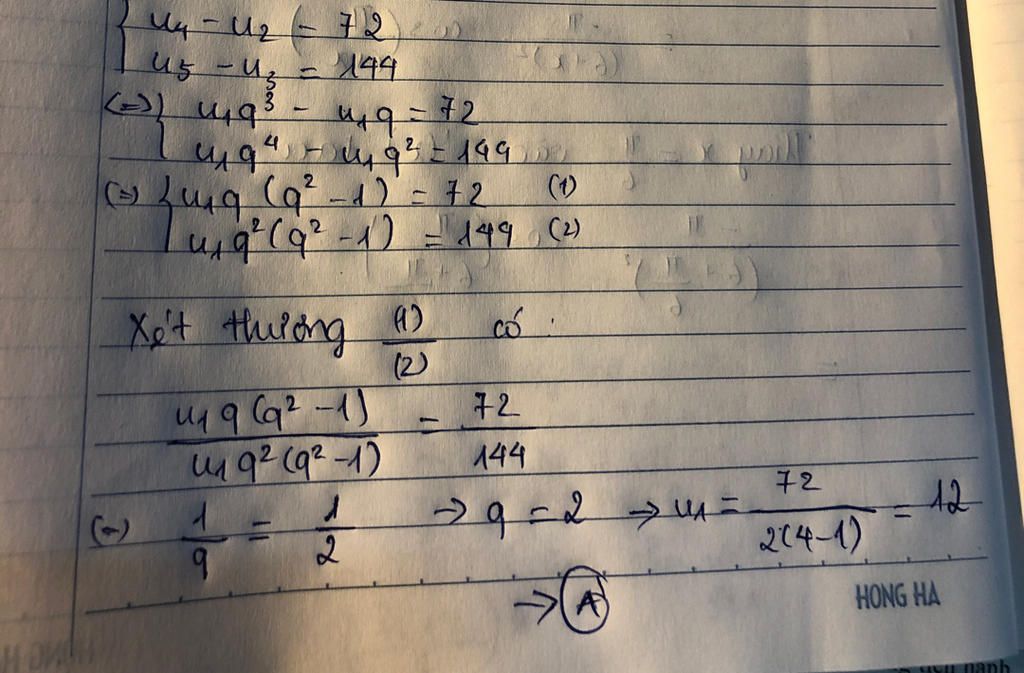 u₄ - u₂ = 72
u₅ - u₃ = 144
(=) u₁q³ - u₁q = 72
u₁q⁴ - u₁q² = 144
(=) u₁q (q² - 1) = 72 (1)
u₁q² (q² - 1) = 144 (2)
Xét thương (1)/(2) có :
u₁q (q² - 1) / u₁q² (q² - 1) = 72 / 144
(=) 1/q = 1/2 → q = 2 → u₁ = 72 / 2(4-1) = 12
→ A
HONG HA